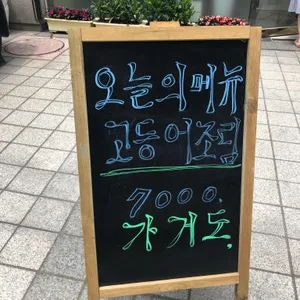 오늘의메뉴
고등어조림
7000.
가거도.